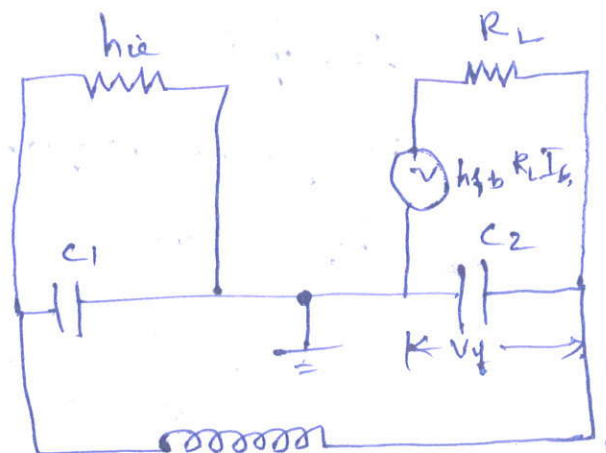 hie
RL
hfb RL Ib
C1
C2
Vf